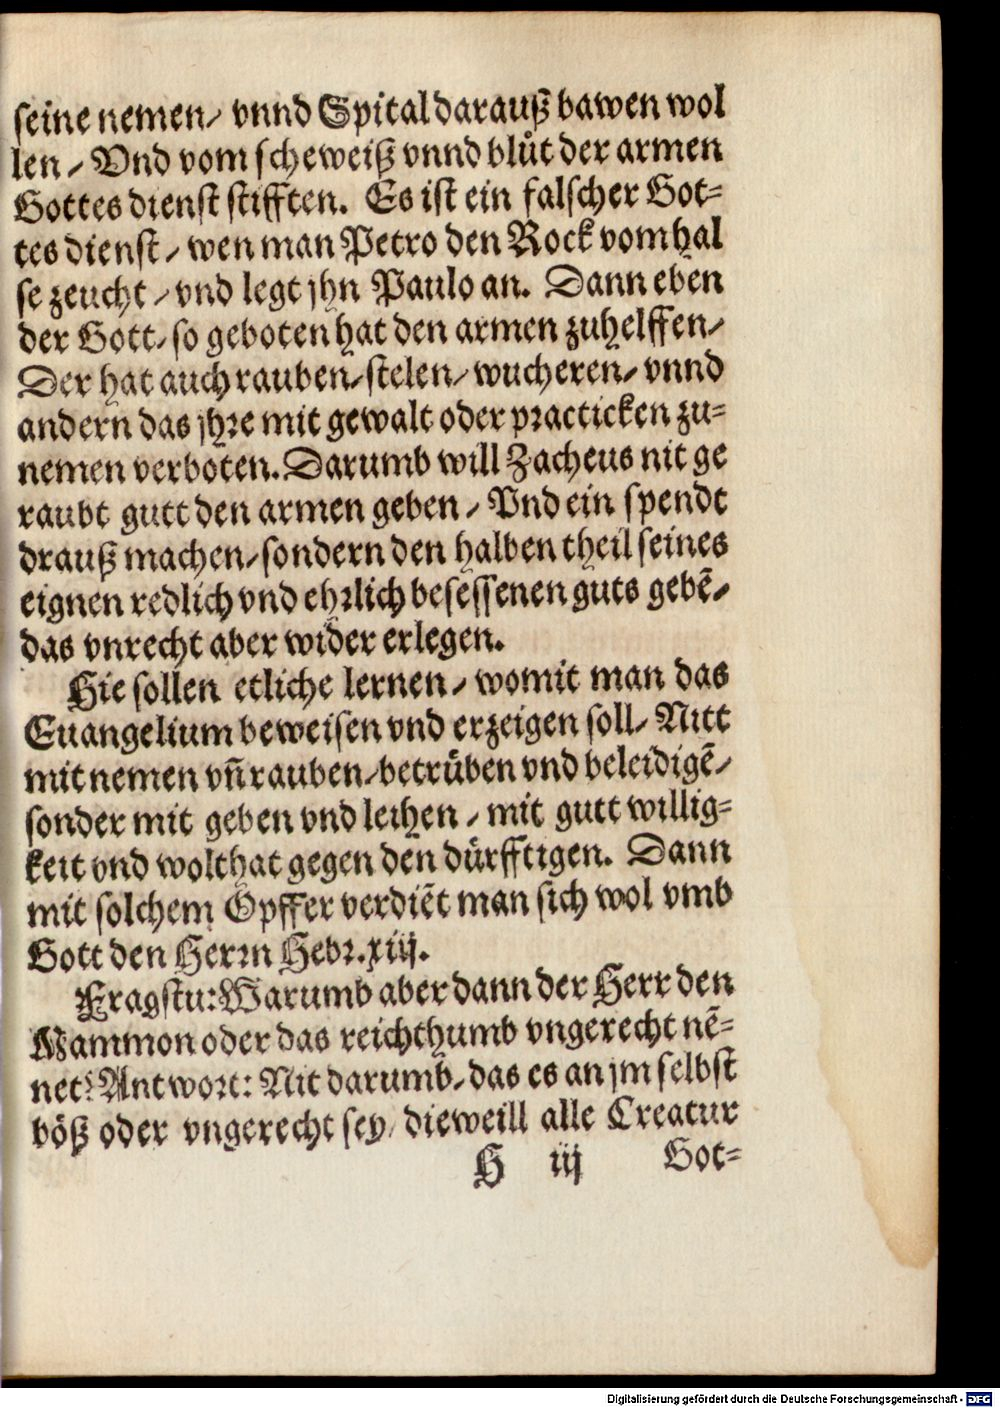 seine nemen/ vnnd Spital darauß bawen wol
len/ Vnd vom scheweiß vnnd blůt der armen
Gottes dienst stifften. Es ist ein falscher Got=
tes dienst/ wen man Petro den Rock vom hal
se zeucht/ vnd legt jhn Paulo an. Dann eben
der Gott/ so geboten hat den armen zuhelffen/
Der hat auch rauben/ stelen/ wucheren/ vnnd
andern das jhre mit gewalt oder practicken zu=
nemen verboten. Darumb will Zacheus nit ge
raubt gutt den armen geben/ Vnd ein spendt
drauß machen/ sondern den halben theil seines
eignen redlich vnd ehrlich besessenen guts gebē/
das vnrecht aber wider erlegen.
Hie sollen etliche lernen/ womit man das
Euangelium beweisen vnd erzeigen soll/ Nitt
mit nemen vñ rauben/ betrüben vnd beleidigē/
sonder mit geben vnd leihen/ mit gutt willig=
keit vnd wolthat gegen den dürfftigen. Dann
mit solchem Opffer verdiēt man sich wol vmb
Gott den Herrn Hebr. xiij.
Fragstu: Warumb aber dann der Herr den
Mammon oder das reichthumb vngerecht nē=
net? Antwort: Nit darumb/ das es an jm selbst
böß oder vngerecht sey/ dieweill alle Creatur
H iij Got=
Digitalisierung gefördert durch die Deutsche Forschungsgemeinschaft - DFG